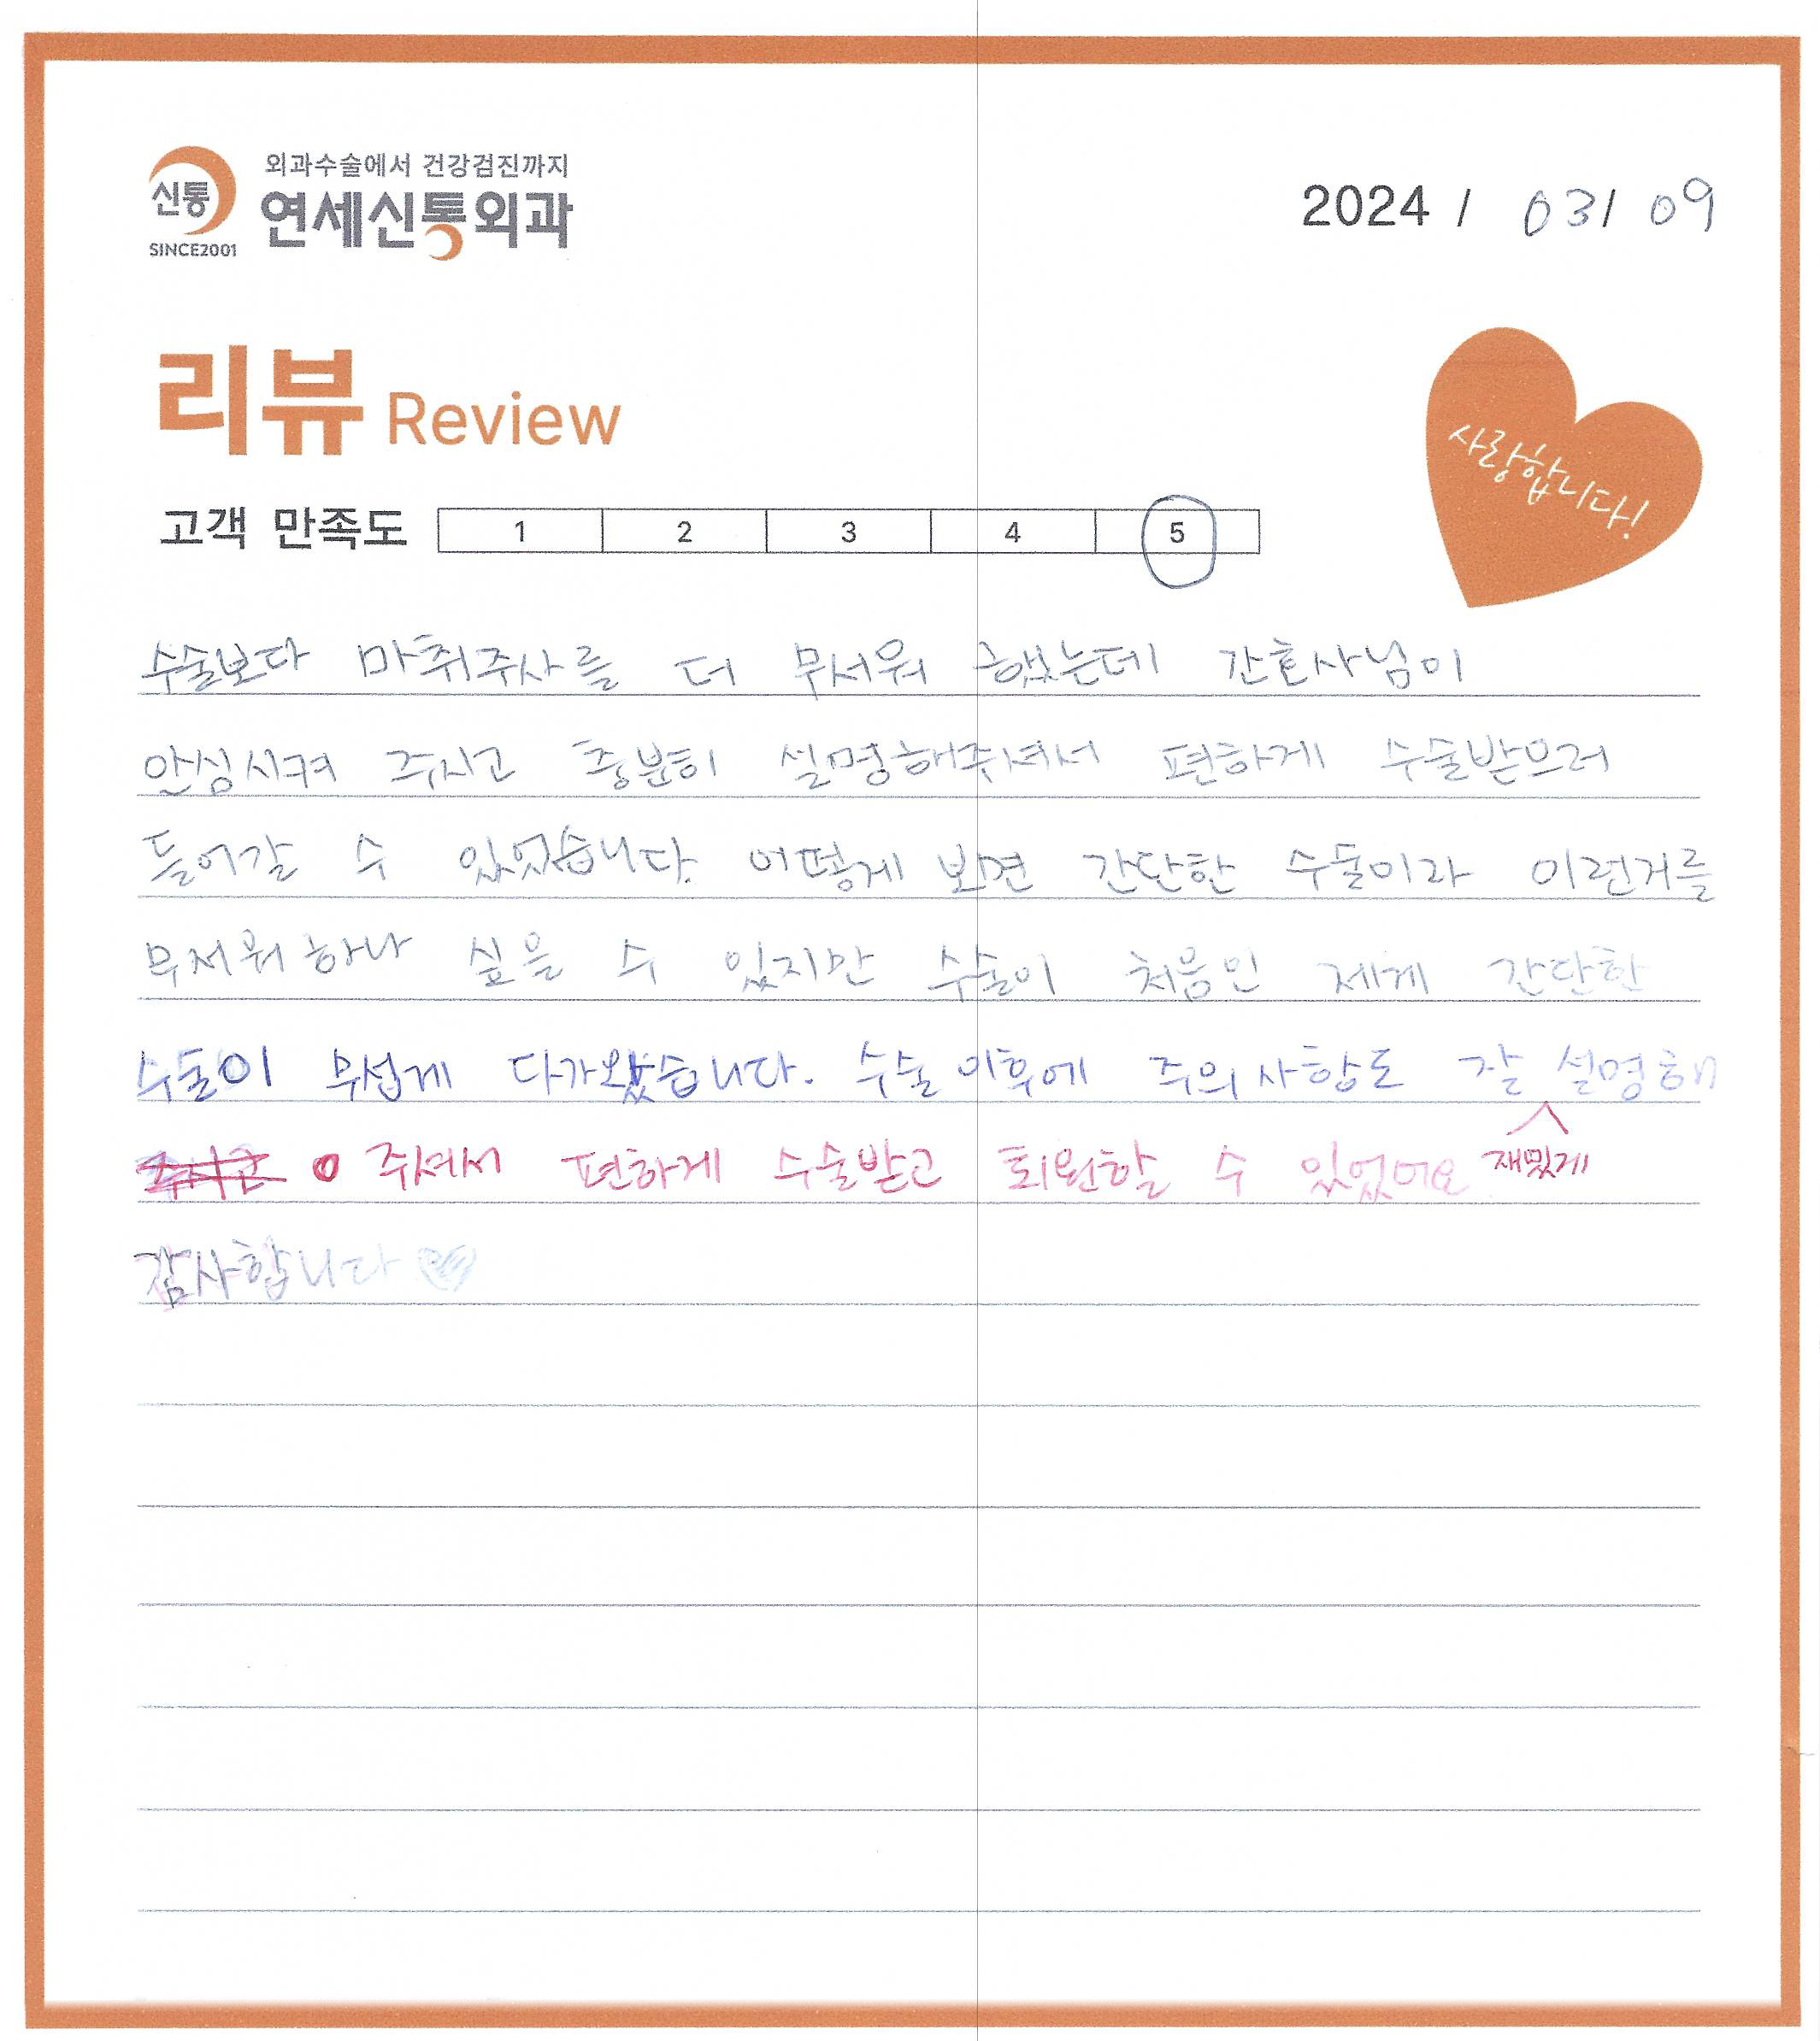 신통
SINCE2001
외과수술에서 건강검진까지
연세신통외과
2024 / 03/ 09
리뷰 Review
사랑합니다!
고객 만족도 1 2 3 4 5
수술보다 마취주사를 더 무서워 했는데 간호사님이
안심시켜 주시고 충분히 설명해주셔서 편하게 수술받으러
들어갈 수 있었습니다. 어떻게 보면 간단한 수술이라 이런거를
무서워하나 싶을 수 있지만 수술이 처음인 제게 간단한
수술이 무섭게 다가왔습니다. 수술 이후에 주의사항도 잘 설명해
주시고 주셔서 편하게 수술받고 퇴원할 수 있었어요 재밌게
감사합니다 ♡